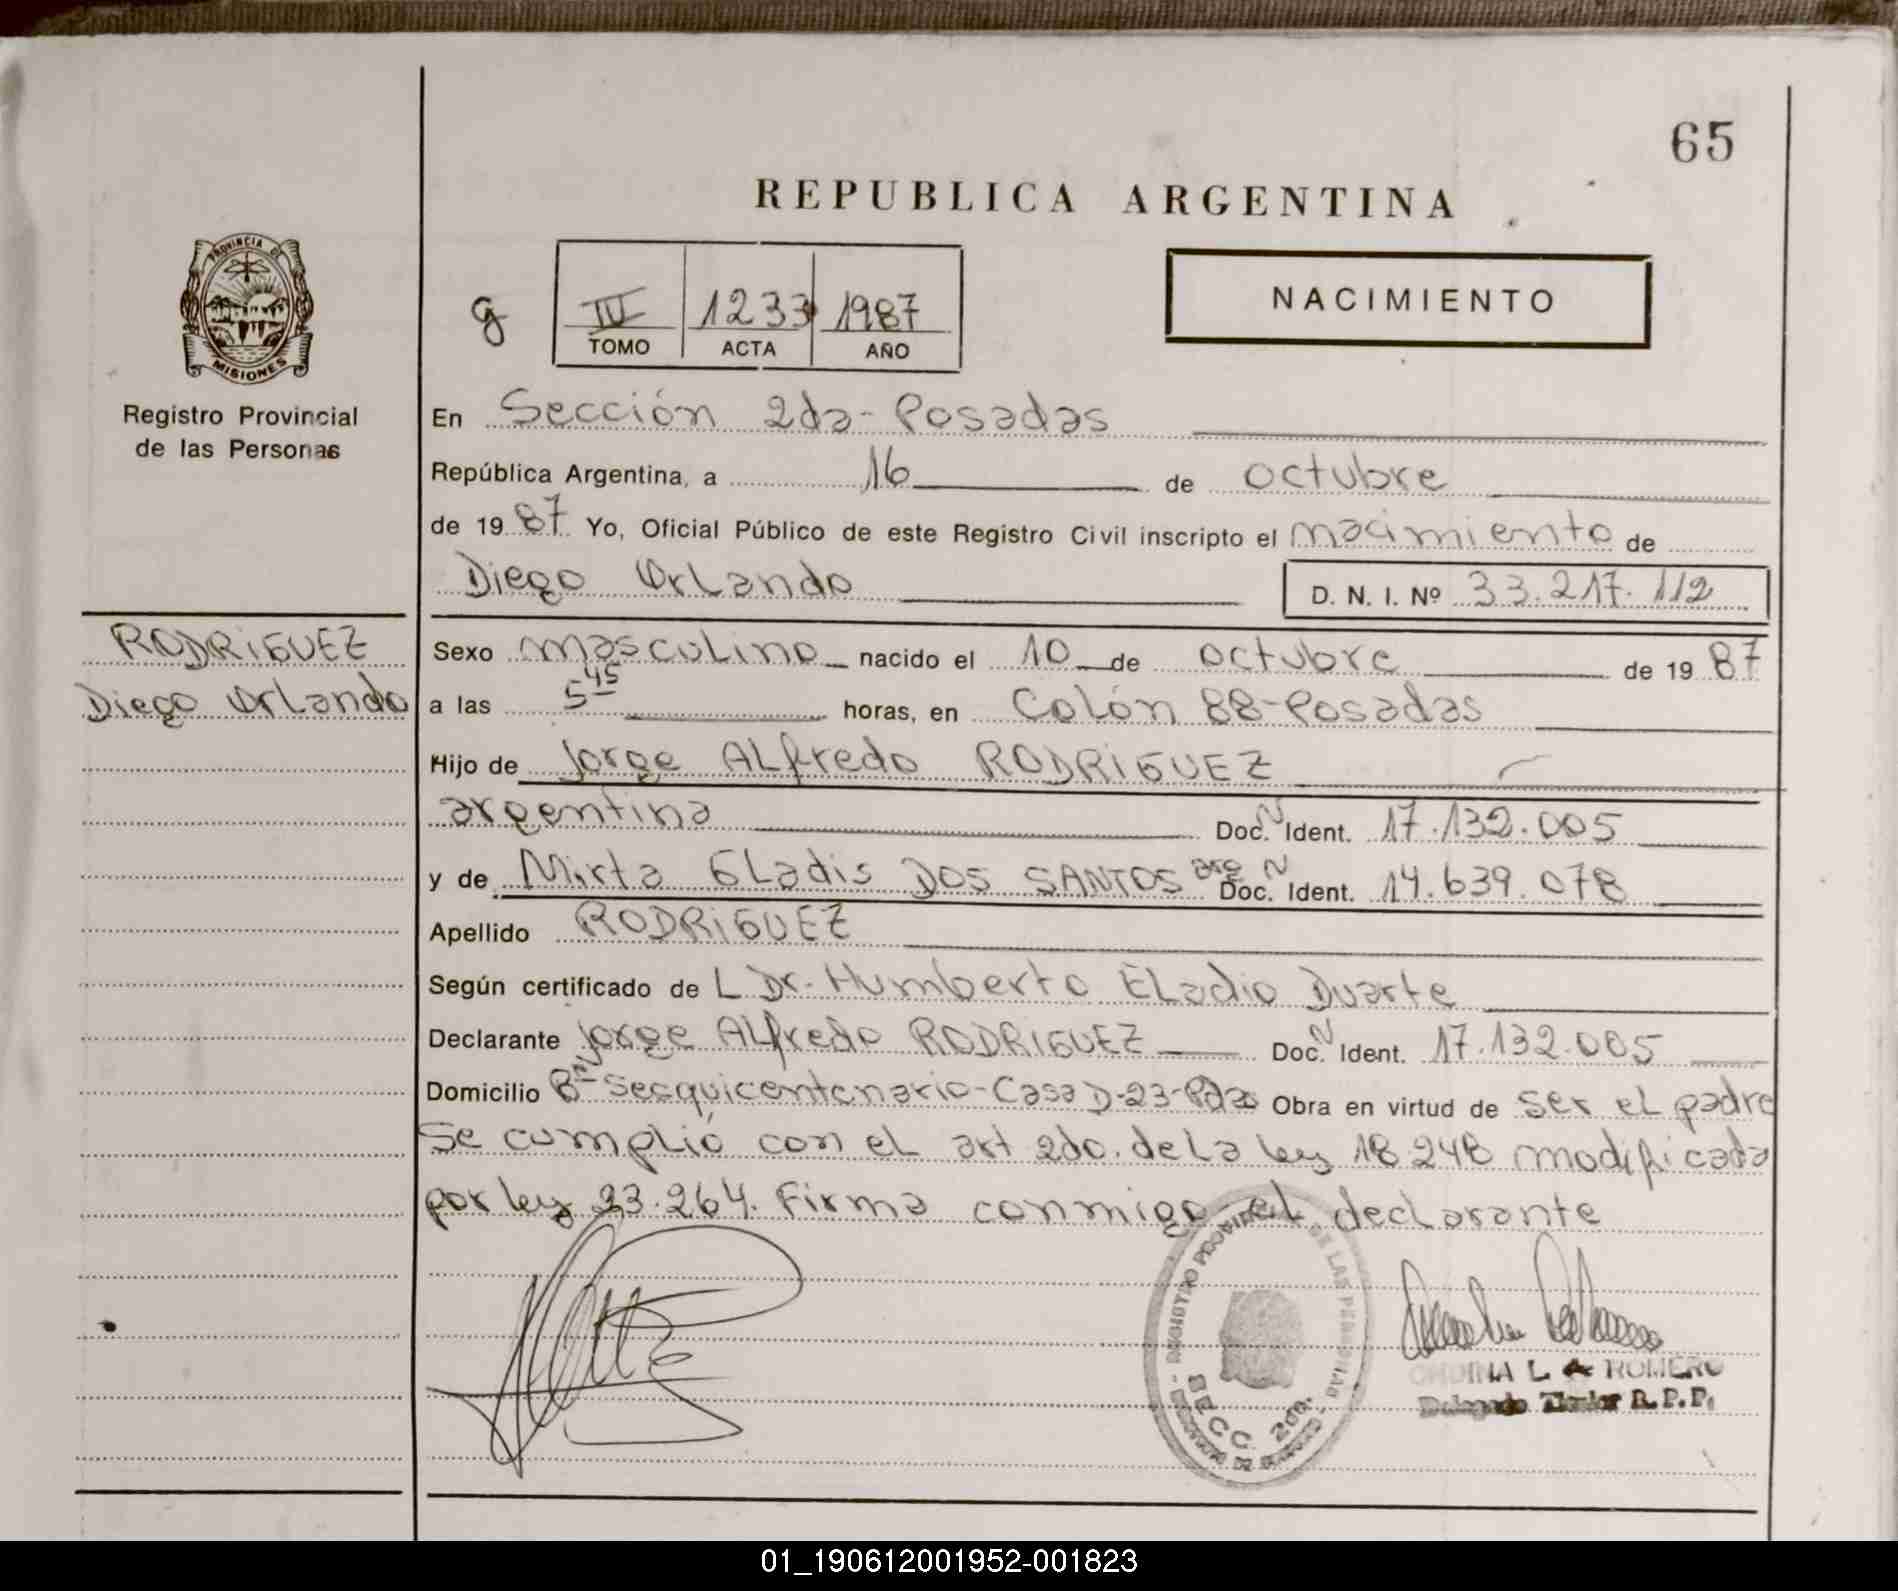 65
REPUBLICA ARGENTINA
PROVINCIA DE
MISIONES
Registro Provincial
de las Personas
g
III 1233 1987
TOMO ACTA AÑO
NACIMIENTO
En Sección 2da- Posadas
República Argentina, a 16 de octubre
de 1987 Yo, Oficial Público de este Registro Civil inscripto el nacimiento de
Diego Orlando D. N. I. Nº 33.217.112
RODRIGUEZ
Diego Orlando
Sexo masculino nacido el 10 de octubre de 1987
a las 5 45 horas, en Colón 88-Posadas
Hijo de Jorge Alfredo RODRIGUEZ
argentina Doc. N Ident. 17.132.005
y de Mirta Gladis DOS SANTOS arg Doc. N Ident. 14.639.078
Apellido RODRIGUEZ
Según certificado de L Dr. Humberto Eladio Duarte
Declarante Jorge Alfredo RODRIGUEZ Doc. N Ident. 17.132.005
Domicilio Bº Sesquicentenario-Casa D-23-Pdas Obra en virtud de ser el padre
Se cumplió con el art 2do. de la ley 18248 modificada
por ley 23.264. Firma conmigo el declarante
REGISTRO PROVINCIAL DE LAS PERSONAS
SECC. 2da.
L A ROMERO
Delegado Titular R.P.P.
01_190612001952-001823